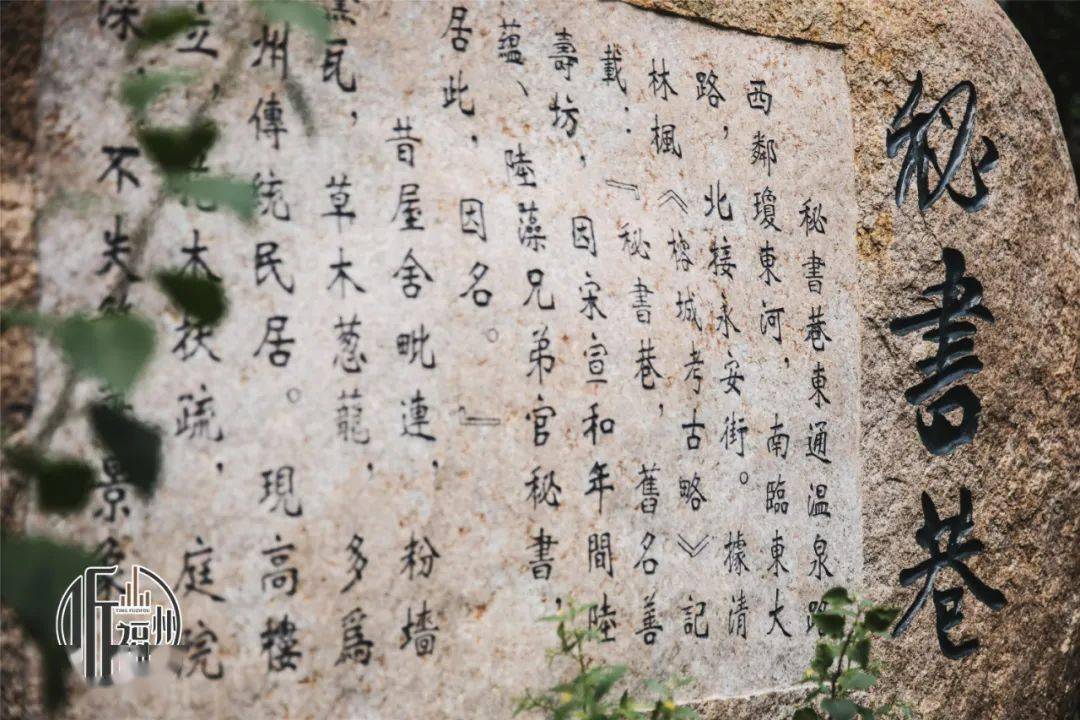 秘書巷
秘書巷東通温泉路
西鄰瓊東河，南臨東大
路，北接永安街。據清
林楓《榕城考古略》記
載：『秘書巷，舊名善
壽坊，因宋宣和年間陸
藴、陸藻兄弟官秘書，
居此，因名。』
昔屋舍毗連，粉墻
瓦，草木葱蘢，多爲
州傳統民居。現高樓
立，木扶疏，庭院
深，不失景
听福州
TING FUZHOU